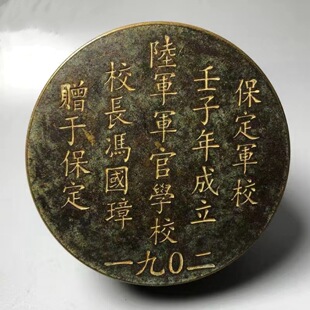 保定軍校
壬子年成立
陸軍軍官學校
校長馮國璋
贈于保定
一九〇二